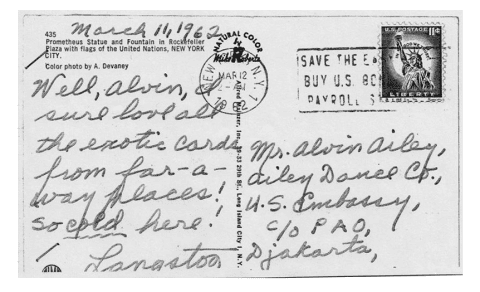 March 11, 1962
435
Prometheus Statue and Fountain in Rockefeller
Plaza with flags of the United Nations, NEW YORK
CITY.
Color photo by A. Devaney
Well, Alvin, I
sure love all
the exotic cards
from far-a-
way places!
So cold here!
Langston
NATURAL COLOR
NEW YORK, N.Y. 1
MAR 12
1962
SAVE THE
BUY U.S.
PAYROLL
U.S. POSTAGE 11¢
LIBERTY
Long Island City 1, N.Y.
Mr. Alvin Ailey,
Ailey Dance Co.,
U.S. Embassy,
c/o PAO,
Djakarta,